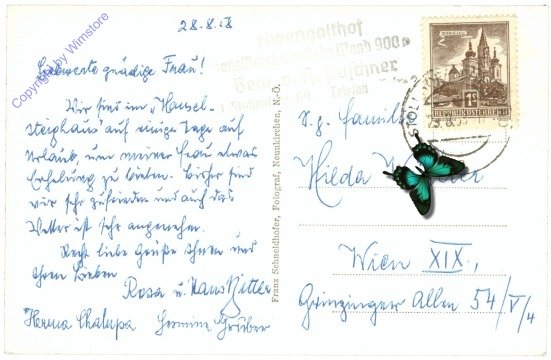 Copyright by Wimstore
28.8.58
Liebwerte gnädige Frau!
Wir sind im "Hansel-
steighaus" auf einige Tage auf
Urlaub, um meiner Frau etwas
Erholung zu bieten. Bisher sind
wir sehr zufrieden und auch das
Wetter ist sehr angenehm.
Recht liebe Grüße Ihnen und
Ihren Lieben
Rosa u. Hans Ritter
Herma Chalupa Hermine Gruber
Franz Schneidhofer, Fotograf, Neunkirchen, N.-Ö.
Alpengasthof
900 m
Telefon
REPUBLIK ÖSTERREICH
S. g. Familie
Hilda
Wien XIX.,
Grinzinger Allee 54/V/4